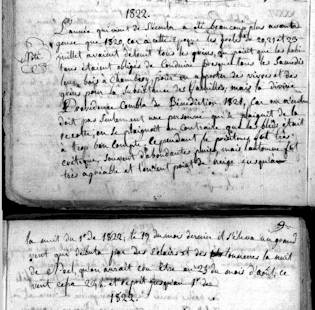 1822.
L'année qui vient de s'écouler a été beaucoup plus avanta
geuse que 1820, car
juillet avaient détruit tous les grains, que les habi
tans étaient obligés de conduire presque tous les Samedis
leurs bois à Chambery, pour en apporter des vivres et des
grains pour la subsistance des familles, mais la divine
Providence combla de Bénédiction 1821, car on n'enten
dait pas seulement une personne qui se plaignit de la
recolte, on se plaignait au contraire que les blés était
à trop bon compte. cependant le printems fut très
critique, souvent d'abondantes pluies, mais l'automne fut
très agréable et surtout point de neige jusqu'à
la nuit du 1er de 1822, le 19 du mois dernier il s'éleva un grand
vent qui débuta par des éclairs et des tonnerres la nuit
de qu'on aurait cru être au 25 du mois d'août, ce
vent cessa et reprit jusqu'au 1er de
1822.